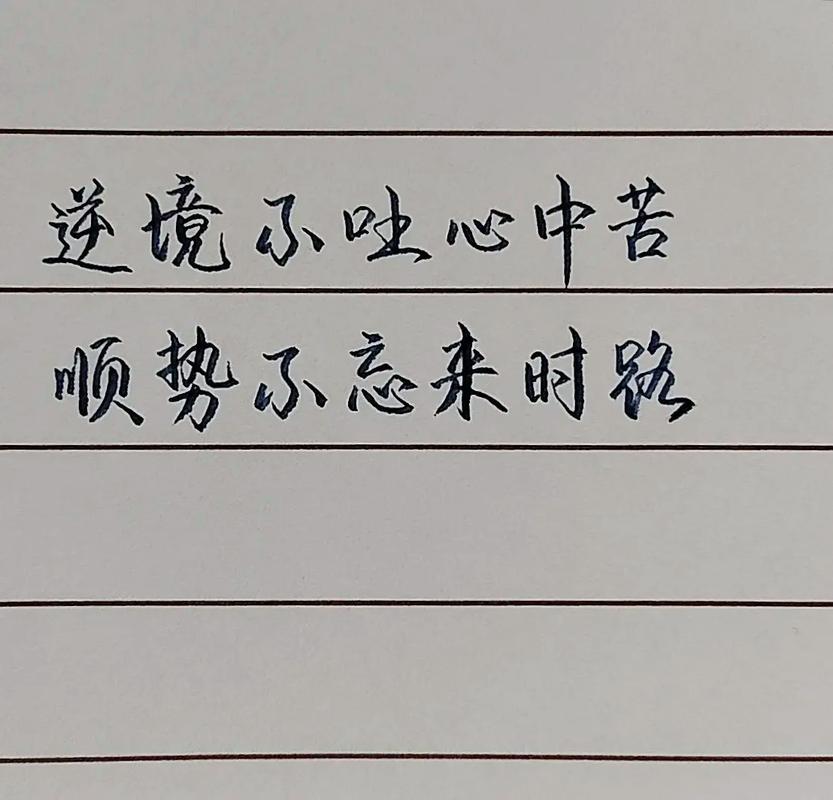 逆境不吐心中苦
顺势不忘来时路